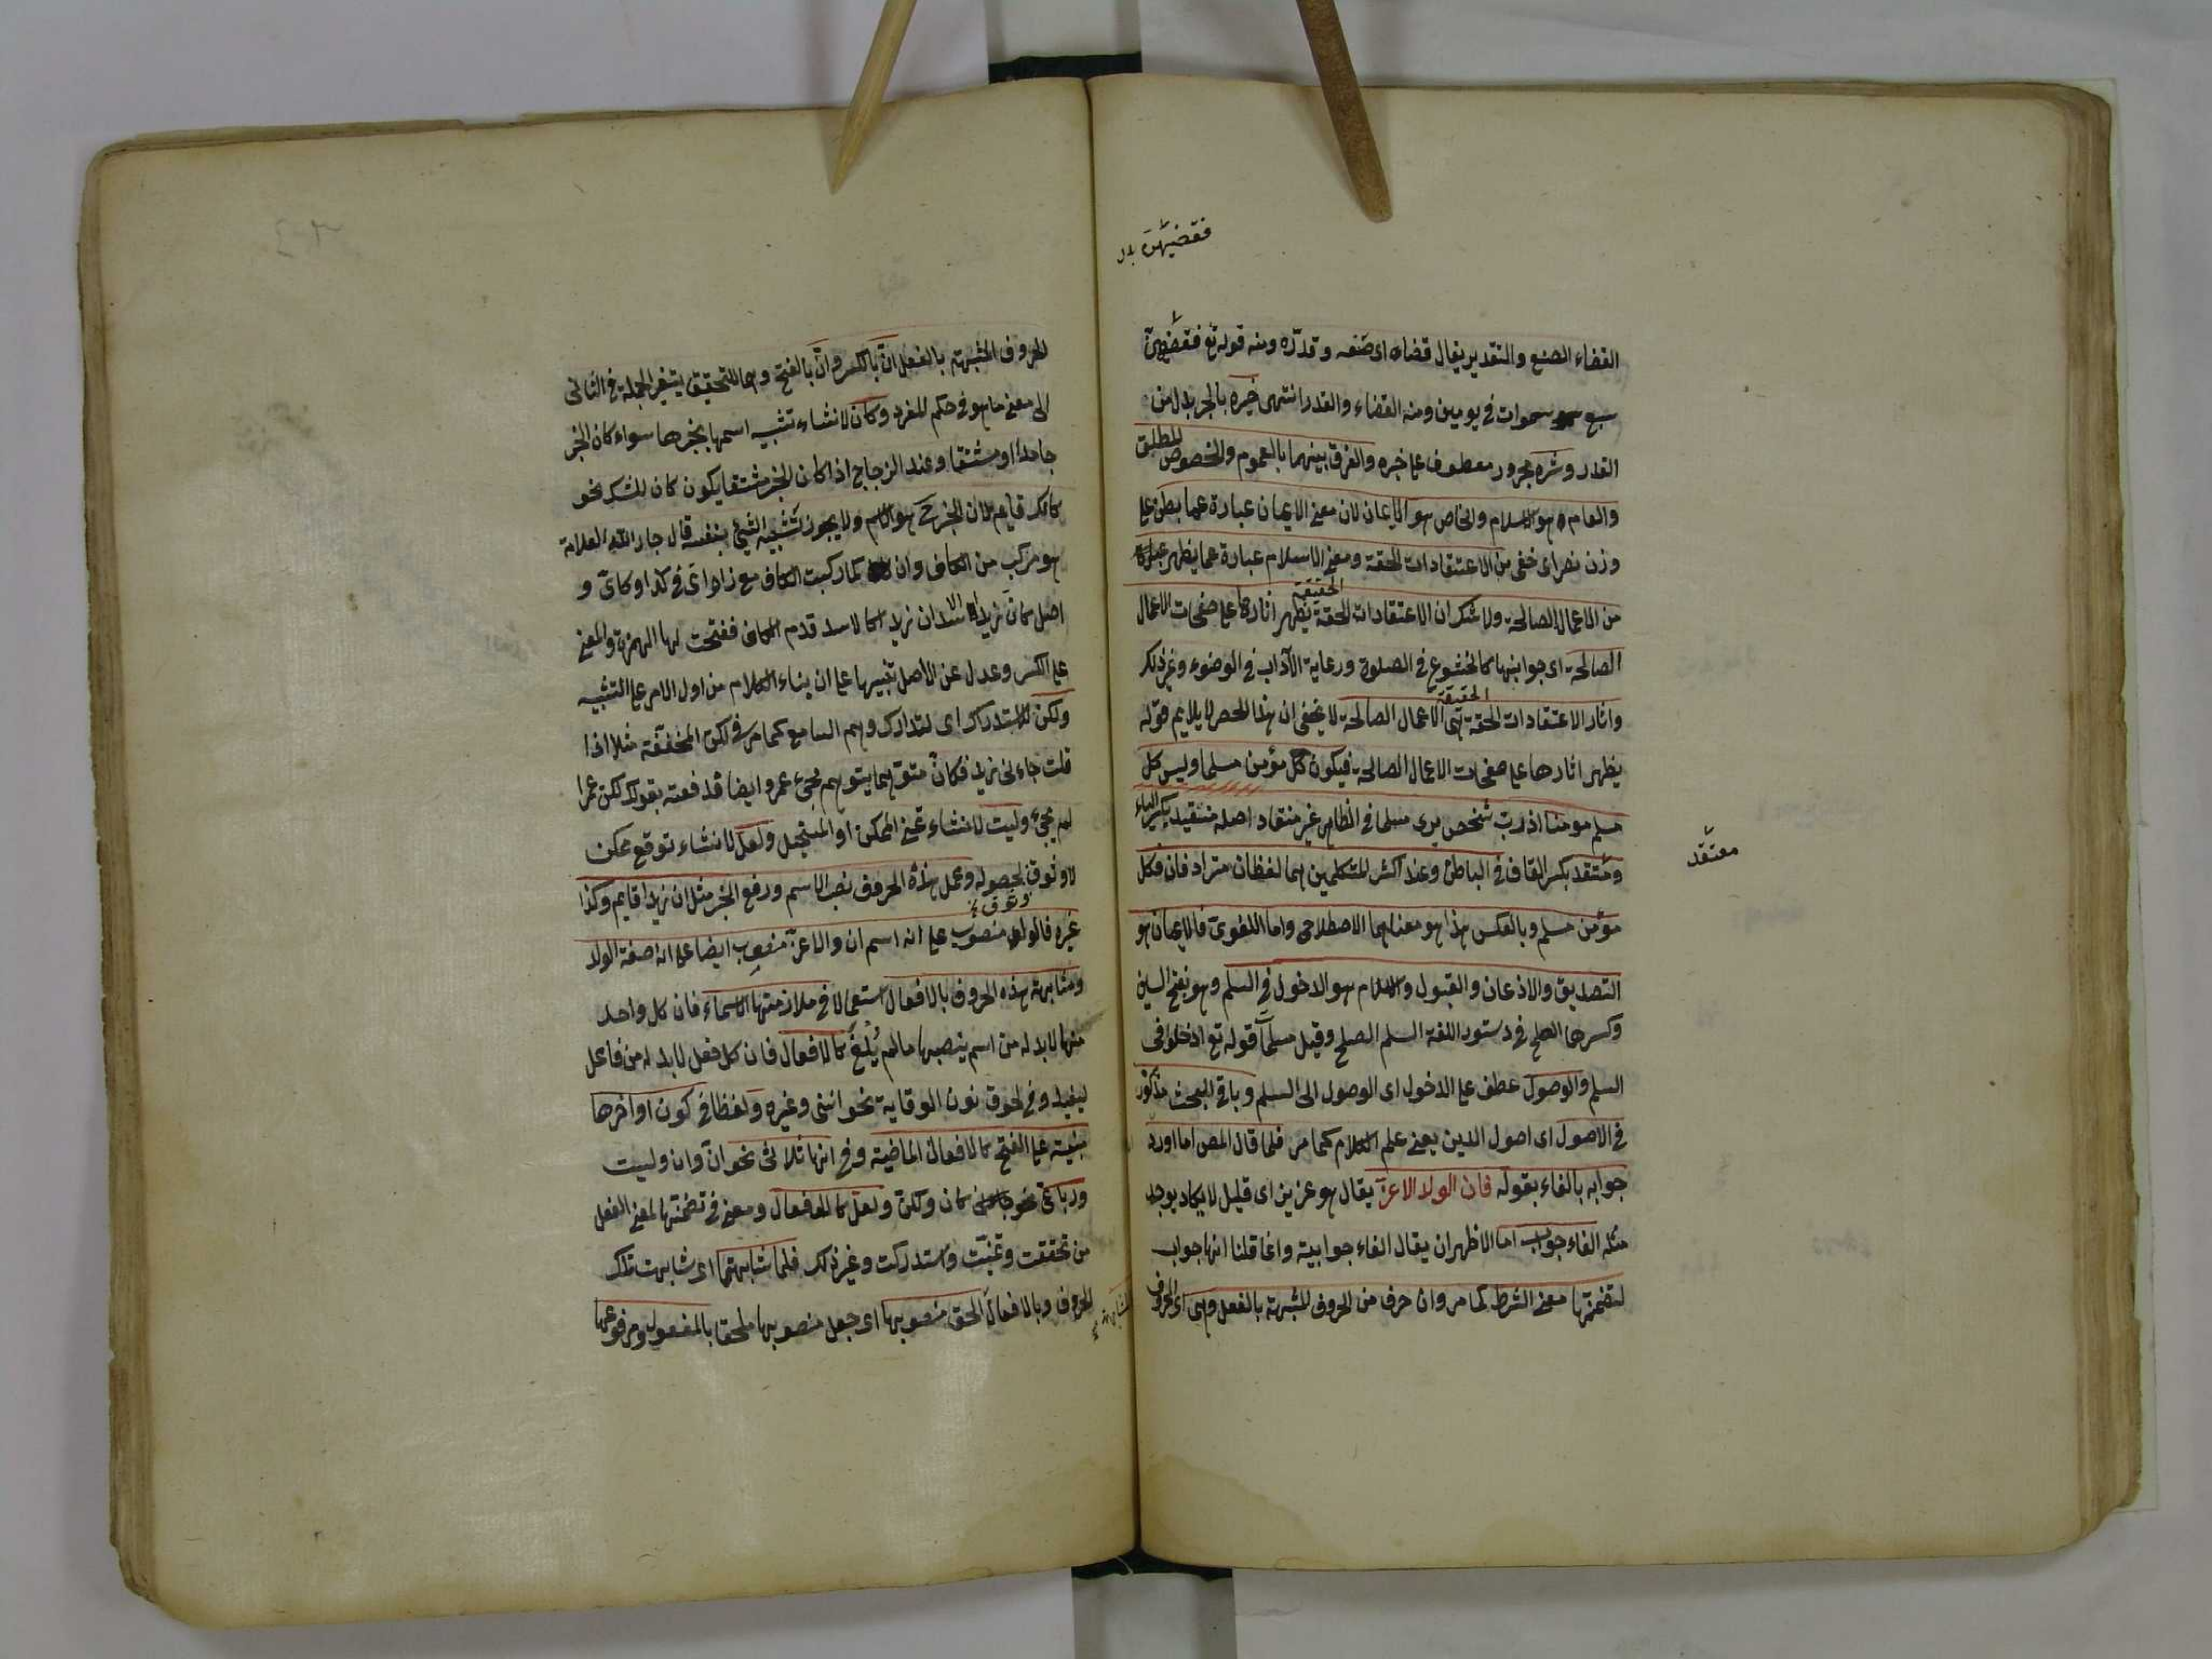 فقضيهن بدل
القضاء الصنع والتقدير يقال قضاه اى صنعه وقدره ومنه قوله تع فقضيهن
سبع سموات فى يومين ومنه القضاء والقدر انتهى خيره بالجر بدل من
القدر وشره مجرور معطوف على خيره والفرق بينهما بالعموم والخصوص المطلق
والعام هو الاسلام والخاص هو الايمان لان معنى الايمان عبارة عما بطن على
وزن نصر اى خفى من الاعتقادات الحقة ومعنى الاسلام عبارة عما يظهر
من الاعمال الصالحة ولا شك ان الاعتقادات الحقة يظهر اثارها على صفحات الاعمال
الحقيقة
الصالحة اى جوانبها كالخشوع فى الصلوة ورعاية الآداب فى الوضوء وغير ذلك
واثار الاعتقادات الحقة هى الاعمال الصالحة لا يخفى ان هذا الحصر لا يلايم قوله
الحقيقة
يظهر اثارها على صفحات الاعمال الصالحة فيكون كل مؤمن مسلما وليس كل
مسلم مومنا اذ رب شخص يرى مسلما فى الظاهر غير منقاد اصله منقيد بكسر الياء
ومعتقد بكسر القاف فى الباطن وعند اكثر المتكلمين هما لفظان مترادفان فكل
معتقد
مؤمن مسلم وبالعكس هذا هو معناهما الاصطلاحى واما اللغوى فالايمان هو
التصديق والاذعان والقبول والاسلام هو الدخول فى السلم وهو بفتح السين
وكسرها الصلح فى دستور اللغة السلم الصلح وقيل مسلما قوله تع ادخلوا فى
السلم والوصول عطف على الدخول اى الوصول الى السلم وباقى البحث مذكور
فى الاصول اى اصول الدين يعنى علم الكلام كما مر فلما قال المص اما اورد
جوابه بالفاء بقوله فان الولد الاعز يقال هو عزيز اى قليل لا يكاد يوجد
مثله الفاء جواب اما الاظهر ان يقال الفاء جوابية وانما قلنا انها جواب
لتضمنها معنى الشرط كما مر وان حرف من الحروف المشبهة بالفعل وهى اى الحروف
الحروف المشبهة بالفعل ان بالكسر وان بالفتح وهما للتحقيق يتغير الجملة فى الثانى
الى معنى ما هو فى حكم المفرد وكان لانشاء تشبيه اسمها بخبرها سواء كان الخبر
جامدا او مشتقا وعند الزجاج اذا كان الخبر مشتقا يكون كان للشك نحو
كانك قايم لان الخبر ح هو الاسم ولا يجوز تشبيه الشئ بنفسه قال جار الله العلامة
هو مركب من الكاف وان كما ركبت الكاف مع ذا واى فى كذا وكاى و
اصل كان زيدا الاسد ان زيدا كالاسد قدم الكاف ففتحت لها الهمزة والمعنى
على الكسر وعدل عن الاصل تنبيها على ان بناء الكلام من اول الامر على التشبيه
ولكن للاستدراك اى لتدارك وهم السامع كما مر فى لكن المخففة مثلا اذا
قلت جاءنى زيد فكان متوهما يتوهم مجئ عمرو ايضا فدفعته بقولك لكن عمرا
لم يجئ وليت لانشاء تمنى الممكن او المستحيل ولعل لانشاء توقع ممكن
لا وثوق بحصوله وعمل هذه الحروف نصب الاسم ورفع الخبر مثل ان زيدا قايم وكذا
وثوق
غيره فالولد منصوب على انه اسم ان والاعز منصوب ايضا على انه صفة الولد
ومشابهة هذه الحروف بالافعال استعمالا فى ملازمتها الاسماء فان كل واحد
منها لابد له من اسم ينصبها ما لم يلغ كالافعال فان كل فعل لابد له من فاعل
ليفيد وفى لحوق نون الوقاية نحو اننى وغيره ولفظا فى كون اواخرها
مبنية على الفتح كالافعال الماضية وفى انها ثلاثى نحو ان وان وليت
ورباعى نحو كان ولكن ولعل كالافعال ومعنى فى تضمنها لمعنى الفعل
من تحققت وتمنيت واستدركت وغير ذلك فلما شابهتها اى شابهت تلك
الحروف وبالافعال الحق منصوبها اى جعل منصوبها ملحقا بالمفعول ومرفوعها